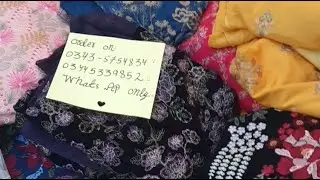 order on
0343-5754834:
03445339852:
Whats Ap only